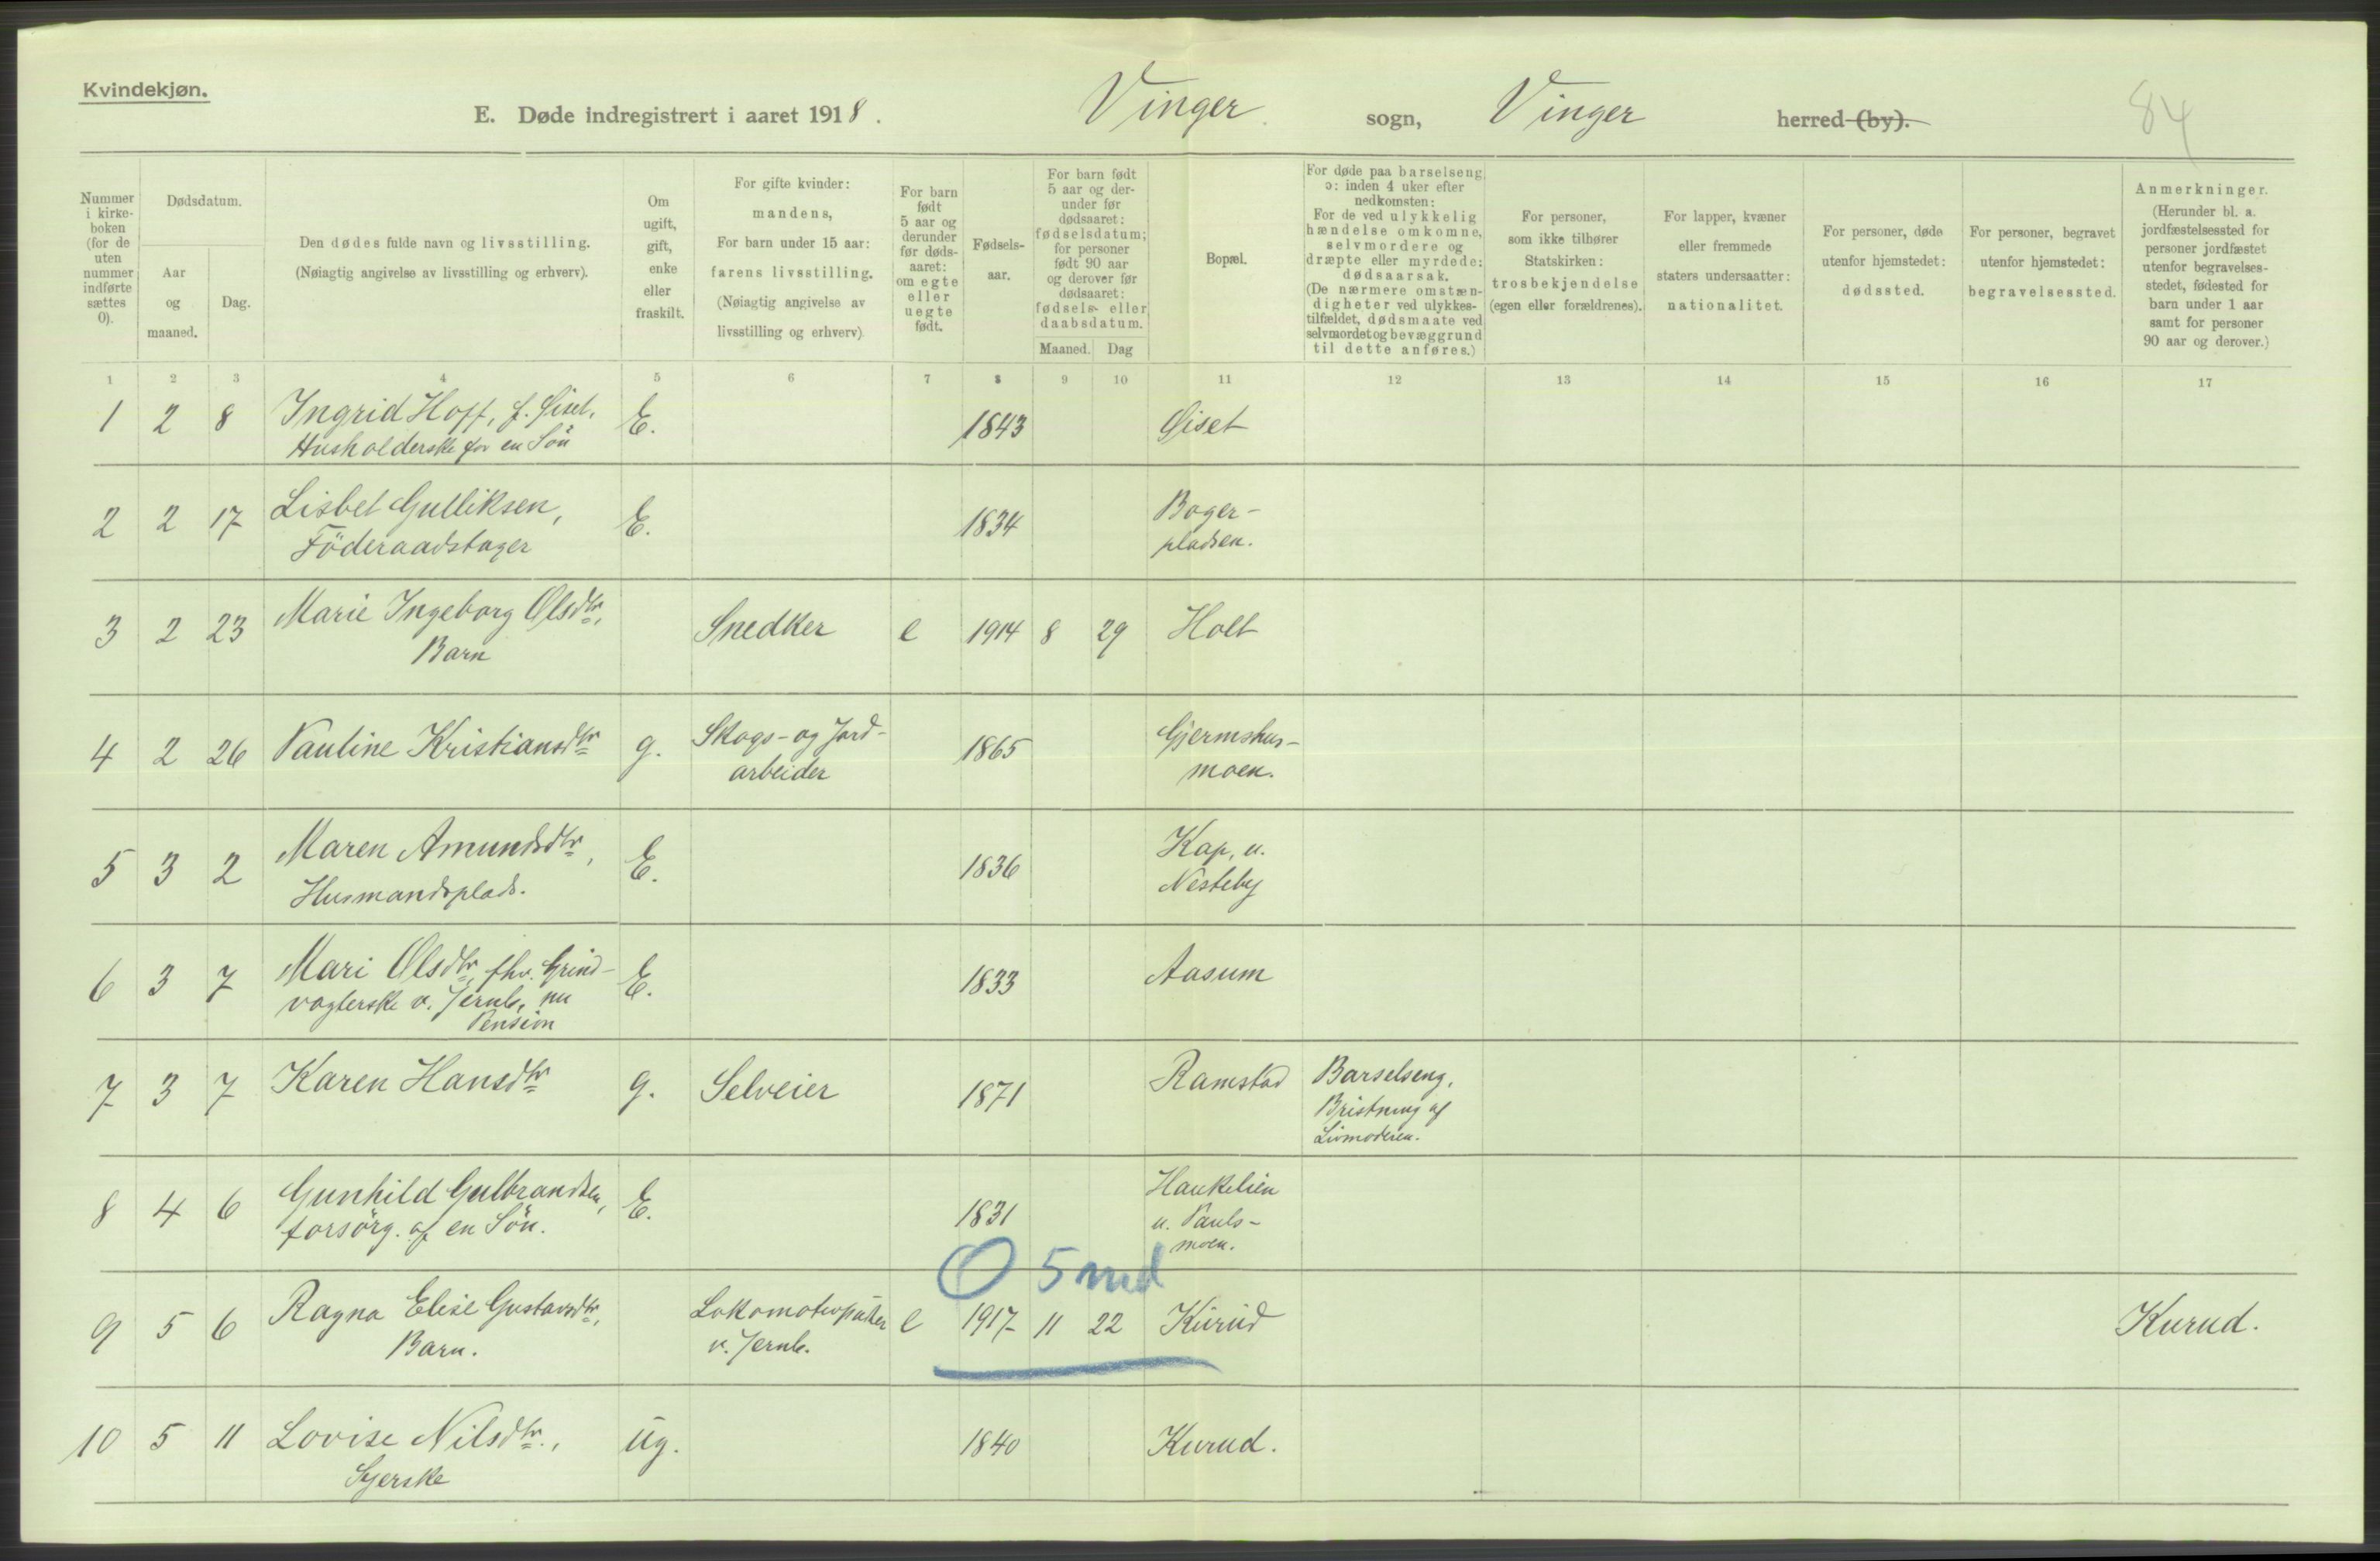 Kvindekjøn.
E. Døde indregistrert i aaret 1918. Vinger sogn, Vinger herred (by). 84
Nummer i kirke-boken (for de uten nummer indførte sættes 0).
Dødsdatum.
Aar og maaned.
Dag.
Den dødes fulde navn og livsstilling.
(Nøiagtig angivelse av livsstilling og erhverv).
Om ugift, gift, enke eller fraskilt.
For gifte kvinder:
mandens,
For barn under 15 aar:
farens livsstilling.
(Nøiagtig angivelse av
livsstilling og erhverv)
For barn født 5 aar og derunder før døds-aaret: om egte eller uegte født.
Fødsels-aar.
For barn født 5 aar og der-under før dødsaaret: fødselsdatum; for personer født 90 aar og derover før dødsaaret: fødsels- eller daabsdatum.
Maaned. Dag
Bopæl.
For døde paa barselseng ɔ: inden 4 uker efter nedkomsten:
For de ved ulykkelig hændelse omkomne, selvmordere og dræpte eller myrdede: dødsaarsak.
(De nærmere omstæn-digheter ved ulykkes-tilfældet, dødsmaate ved selvmordet og bevæggrund til dette anføres.)
For personer, som ikke tilhører Statskirken: trosbekjendelse (egen eller forældrenes).
For lapper, kvæner eller fremmede staters undersaatter: nationalitet.
For personer, døde utenfor hjemstedet: dødssted.
For personer, begravet utenfor hjemstedet: begravelsessted.
Anmerkninger.
(Herunder bl. a. jordfæstelsessted for personer jordfæstet utenfor begravelses-stedet, fødested for barn under 1 aar samt for personer 90 aar og derover.)
1 2 3 4 5 6 7 8 9 10 11 12 13 14 15 16 17
1 2 8 Ingrid Hoff, f. Øiset, E. 1843 Øiset
Husholderske for en Søn
2 2 17 Lisbet Gulliksen, E. 1834 Boger-
Föderaadstager pladsen.
3 2 23 Marie Ingeborg Olsdtr, Snedker e 1914 8 29 Holt
Barn
4 2 26 Pauline Kristiansdtr g. Skogs- og Jord- 1865 Gjermshus-
arbeider moen.
5 3 2 Maren Amundsdtr, E. 1836 Kap, u.
Husmandsplads. Nesteby
6 3 7 Mari Olsdtr, fhv. Grind- E. 1833 Aasum
vogterske v. Jernb, nu
Pension
7 3 7 Karen Hansdtr g. Selveier 1871 Ramstad Barselseng,
Bristning af
Livmoderen.
8 4 6 Gunhild Gulbrandsen, E. 1831 Haukelien
forsörg. af en Sön. u. Pauls-
moen.
0 5 md
9 5 6 Ragna Elise Gustavsdtr, Lokomotivpudser e 1917 11 22 Kurud Kurud.
Barn. v. Jernb.
10 5 11 Lovise Nilsdtr., ug. 1840 Kurud.
Syerske